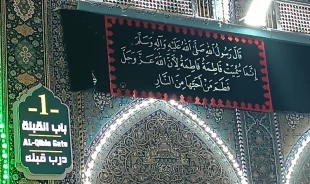 قال رسول الله صلى الله عليه وآله وسلم
إنما سميت فاطمة فاطمة لأن الله عز وجل
فطم من أحبها من النار
- 1 -
باب القبلة
AL-Qibla Gate
درب قبله